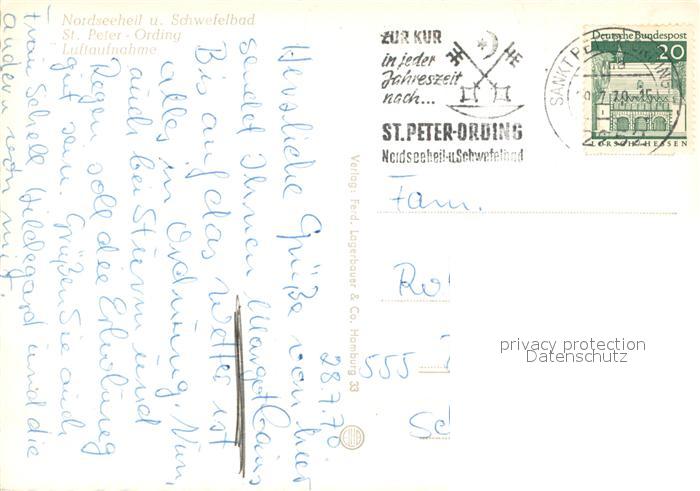 Nordseeheil u. Schwefelbad
St. Peter - Ording
Luftaufnahme
28.7.70
Herzliche Grüße von hier
sendet Ihnen Margot
Bis auf das Wetter ist
alles in Ordnung. Nun,
auch bei Sturm und
Regen soll die Erholung
gut sein. Grüßen Sie auch
Frau Schell Hildegard und die
andern von mir.
Verlag: Ferd. Lagerbauer & Co. Hamburg 33
ZUR KUR
in jeder
Jahreszeit
nach...
ST. PETER-ORDING
Nordseeheil-u.Schwefelbad
SANKT PETER-ORDING
Deutsche Bundespost
20
LORSCH/HESSEN
Fam.
555
privacy protection
Datenschutz